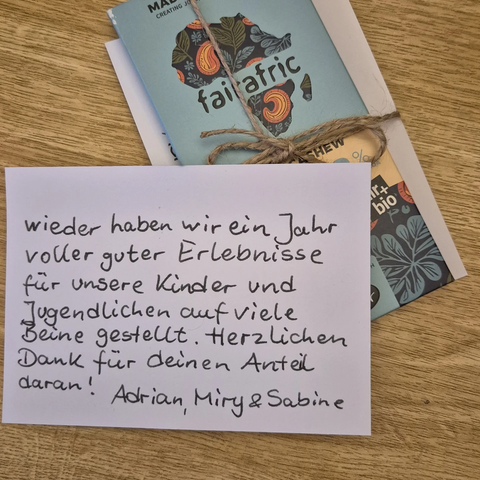 CREATING
fairafric
%
bio
wieder haben wir ein Jahr
voller guter Erlebnisse
für unsere Kinder und
Jugendlichen auf viele
Beine gestellt. Herzlichen
Dank für deinen Anteil
daran!
Adrian, Miry & Sabine